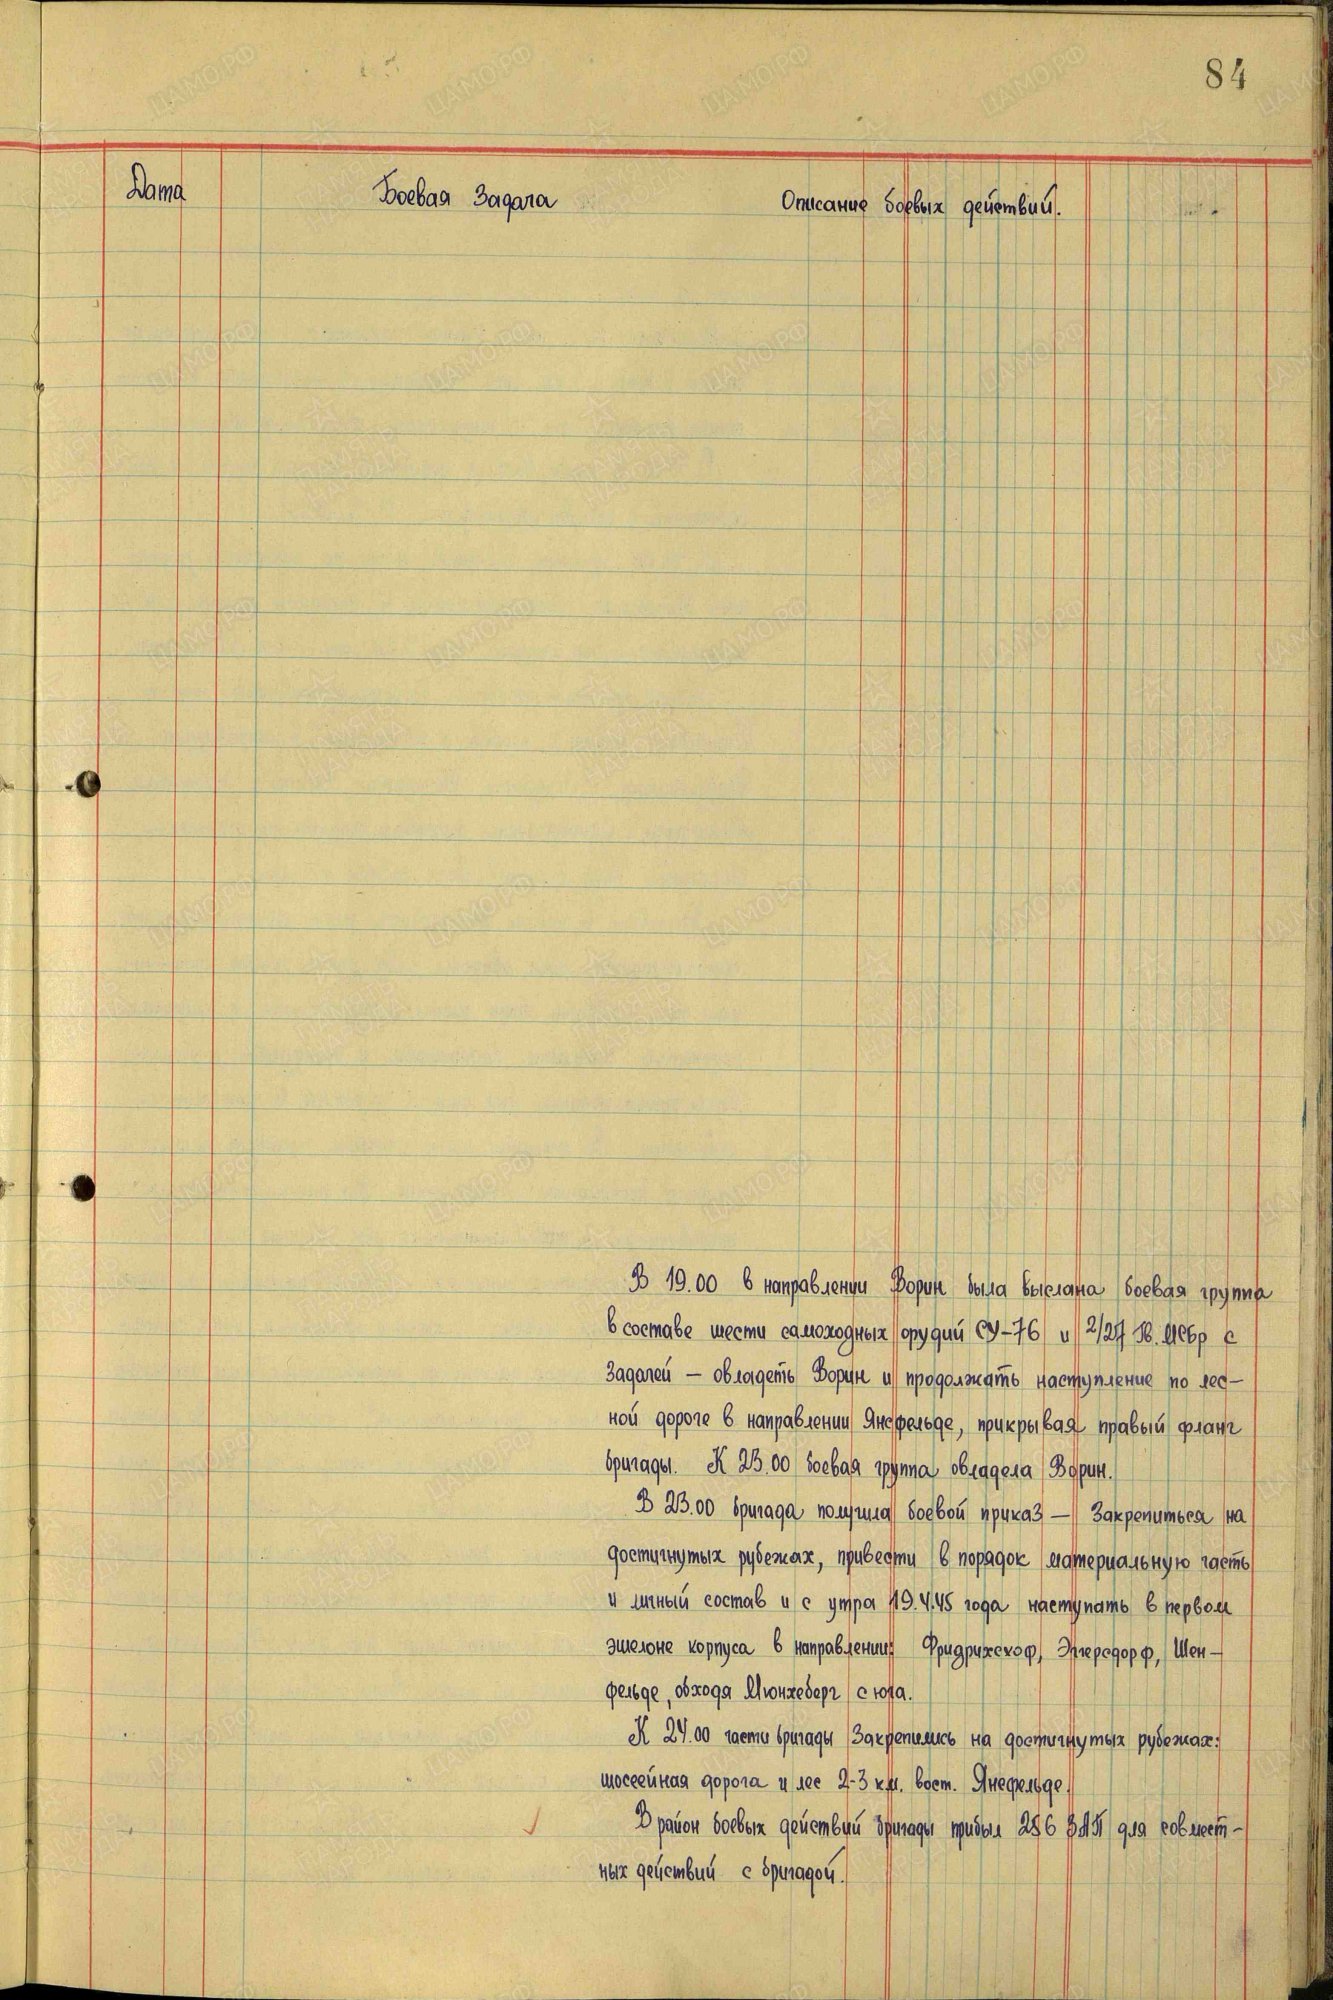 84
Дата Боевая Задача Описание боевых действий.
В 19.00 в направлении Ворин была выслана боевая группа
в составе шести самоходных орудий СУ-76 и 2/27 Гв. МСбр с
Задачей — овладеть Ворин и продолжать наступление по лес-
ной дороге в направлении Янсфельде, прикрывая правый фланг
бригады. К 23.00 боевая группа овладела Ворин.
В 23.00 бригада получила боевой приказ — Закрепиться на
достигнутых рубежах, привести в порядок материальную часть
и личный состав и с утра 19.4.45 года наступать в первом
эшелоне корпуса в направлении: Фридрихсхоф, Эггерсдорф, Шен-
фельде, обходя Мюнхеберг с юга.
К 24.00 части бригады Закрепились на достигнутых рубежах:
шоссейная дорога и лес 2-3 км. вост. Янсфельде.
В район боевых действий бригады прибыл 286 ЗАП для совмест-
ных действий с бригадой.
ЦАМО.РФ
ПАМЯТЬ НАРОДА